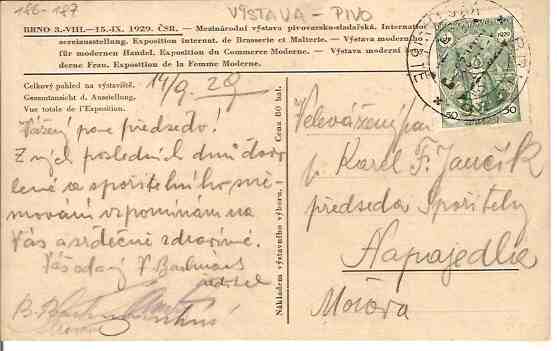 186-187
VÝSTAVA - PIVO
BRNO 3.-VIII.—15.-IX. 1929. ČSR. — Mezinárodní výstava pivovarsko-sladařská. Internation
serienausstellung. Exposition internat. de Brasserie et Malterie. — Výstava moderního
für modernen Handel. Exposition du Commerce Moderne. — Výstava moderní
derne Frau. Exposition de la Femme Moderne.
Celkový pohled na výstaviště.
Gesamtansicht d. Ausstellung.
Vue totale de l'Exposition.
14/9. 29
Vážený pane předsedo.
Z mých posledních dnů dovo
lené a spořitelního
mování vzpomínám na
Vás a srdečně zdravíme.
Váš oddaný
Nákladem výstavního výboru.
Cena 80 hal.
1929
50
50
Velevážený pan
p. Karel F. Jančík
předseda Spořitelny
Napajedla
Morava